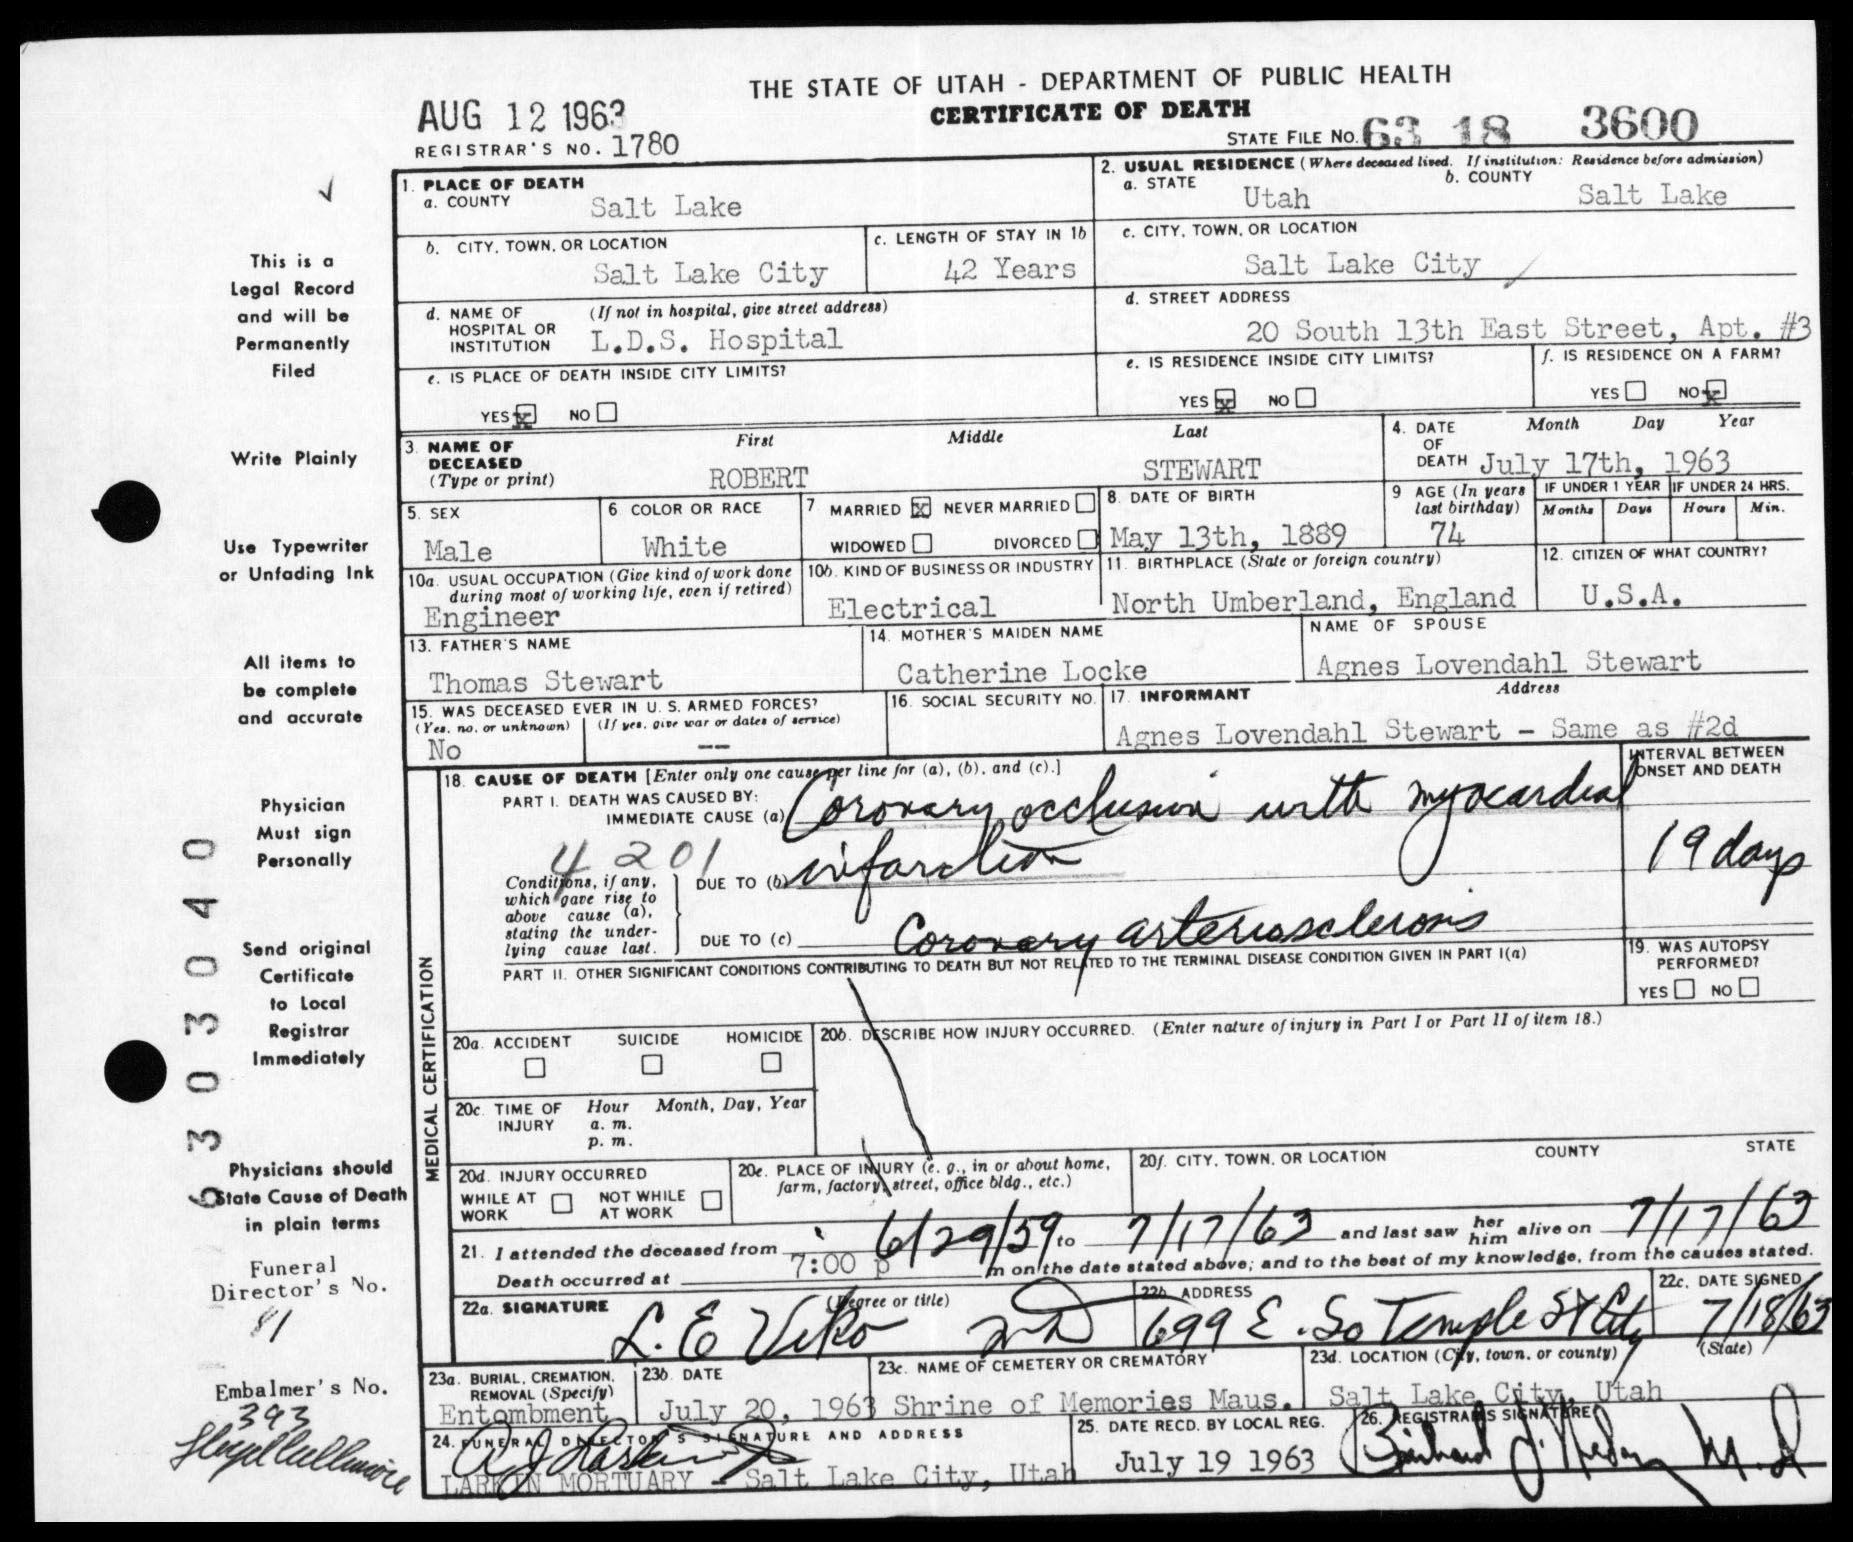 THE STATE OF UTAH - DEPARTMENT OF PUBLIC HEALTH
CERTIFICATE OF DEATH
AUG 12 1963
REGISTRAR'S NO. 1780
STATE FILE NO. 63 18 3600
1. PLACE OF DEATH
a. COUNTY
Salt Lake
2. USUAL RESIDENCE (Where deceased lived. If institution: Residence before admission)
a. STATE b. COUNTY
Utah Salt Lake
b. CITY, TOWN, OR LOCATION
Salt Lake City
c. LENGTH OF STAY IN 1b
42 Years
c. CITY, TOWN, OR LOCATION
Salt Lake City
d. NAME OF HOSPITAL OR INSTITUTION (If not in hospital, give street address)
L.D.S. Hospital
d. STREET ADDRESS
20 South 13th East Street, Apt. #3
e. IS PLACE OF DEATH INSIDE CITY LIMITS?
YES x NO
e. IS RESIDENCE INSIDE CITY LIMITS?
YES x NO
f. IS RESIDENCE ON A FARM?
YES NO x
3. NAME OF DECEASED (Type or print)
First Middle Last
ROBERT STEWART
4. DATE OF DEATH Month Day Year
July 17th, 1963
5. SEX
Male
6. COLOR OR RACE
White
7 MARRIED x NEVER MARRIED
WIDOWED DIVORCED
8. DATE OF BIRTH
May 13th, 1889
9 AGE (In years last birthday)
74
IF UNDER 1 YEAR IF UNDER 24 HRS.
Months Days Hours Min.
10a. USUAL OCCUPATION (Give kind of work done during most of working life, even if retired)
Engineer
10b. KIND OF BUSINESS OR INDUSTRY
Electrical
11. BIRTHPLACE (State or foreign country)
North Umberland, England
12. CITIZEN OF WHAT COUNTRY?
U.S.A.
13. FATHER'S NAME
Thomas Stewart
14. MOTHER'S MAIDEN NAME
Catherine Locke
NAME OF SPOUSE
Agnes Lovendahl Stewart
15. WAS DECEASED EVER IN U. S. ARMED FORCES?
(Yes, no, or unknown) (If yes, give war or dates of service)
No --
16. SOCIAL SECURITY NO.
17. INFORMANT Address
Agnes Lovendahl Stewart - Same as #2d
MEDICAL CERTIFICATION
18. CAUSE OF DEATH [Enter only one cause per line for (a), (b), and (c).]
INTERVAL BETWEEN ONSET AND DEATH
PART I. DEATH WAS CAUSED BY:
IMMEDIATE CAUSE (a) Coronary occlusion with myocardial
4201
Conditions, if any, which gave rise to above cause (a), stating the underlying cause last.
DUE TO (b) infarction
19 days
DUE TO (c) Coronary arteriosclerosis
PART II. OTHER SIGNIFICANT CONDITIONS CONTRIBUTING TO DEATH BUT NOT RELATED TO THE TERMINAL DISEASE CONDITION GIVEN IN PART I(a)
19. WAS AUTOPSY PERFORMED?
YES NO
20a. ACCIDENT SUICIDE HOMICIDE
20b. DESCRIBE HOW INJURY OCCURRED. (Enter nature of injury in Part I or Part II of item 18.)
20c. TIME OF INJURY Hour Month, Day, Year
a. m.
p. m.
20d. INJURY OCCURRED
WHILE AT WORK NOT WHILE AT WORK
20e. PLACE OF INJURY (e. g., in or about home, farm, factory, street, office bldg., etc.)
20f. CITY, TOWN, OR LOCATION COUNTY STATE
21. I attended the deceased from 6/29/59 to 7/17/63 and last saw her him alive on 7/17/63
Death occurred at 7:00 p m on the date stated above; and to the best of my knowledge, from the causes stated.
22a. SIGNATURE (Degree or title)
L. E. Viko MD
22b. ADDRESS
699 E. So Temple St City
22c. DATE SIGNED
7/18/63
23a. BURIAL, CREMATION, REMOVAL (Specify)
Entombment
23b. DATE
July 20, 1963
23c. NAME OF CEMETERY OR CREMATORY
Shrine of Memories Maus.
23d. LOCATION (City, town, or county) (State)
Salt Lake City, Utah
24. FUNERAL DIRECTOR'S SIGNATURE AND ADDRESS
LARKIN MORTUARY - Salt Lake City, Utah
25. DATE RECD. BY LOCAL REG.
July 19 1963
26. REGISTRAR'S SIGNATURE
M.D
This is a
Legal Record
and will be
Permanently
Filed
Write Plainly
Use Typewriter
or Unfading Ink
All items to
be complete
and accurate
Physician
Must sign
Personally
Send original
Certificate
to Local
Registrar
Immediately
Physicians should
State Cause of Death
in plain terms
Funeral
Director's No.
81
Embalmer's No.
393
6303040